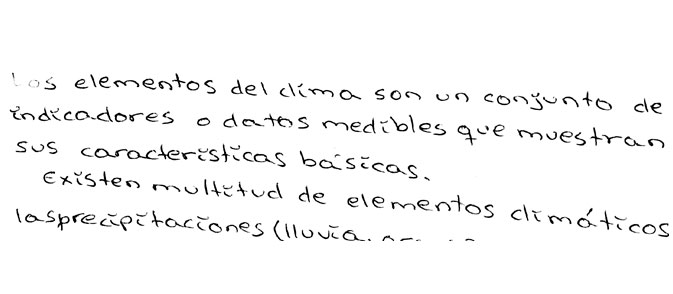 Los elementos del clima son un conjunto de
indicadores o datos medibles que muestran
sus características básicas.
Existen multitud de elementos climáticos
las precipitaciones (lluvia,